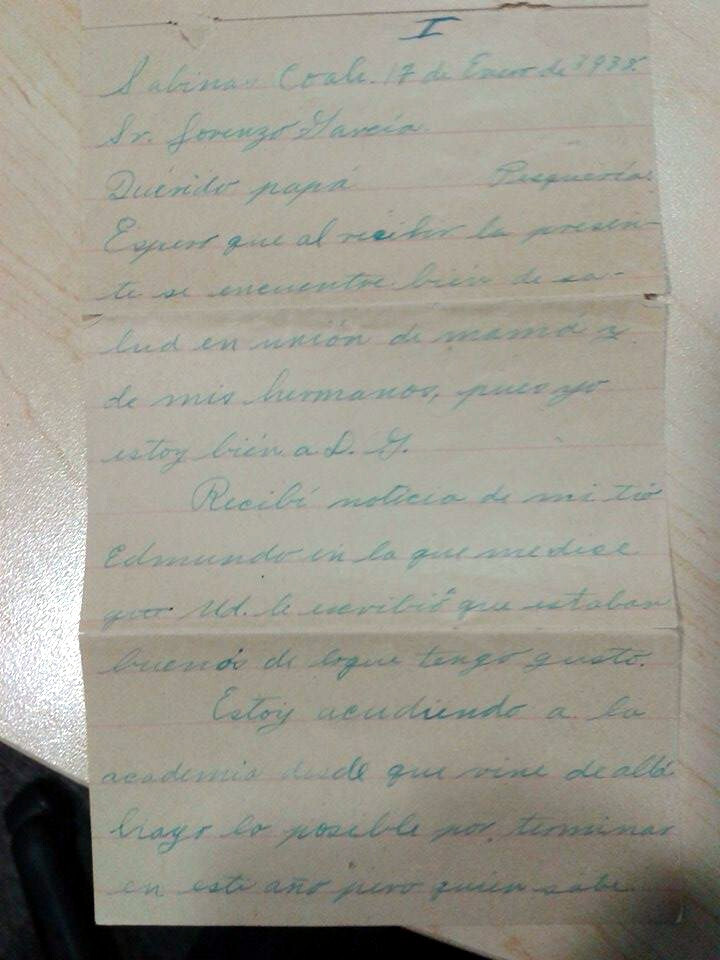 I
Sabinas Coah. 17 de Enero de 1938.
Sr. Lorenzo Garcia.
Querido papá Pesquería.
Espero que al recibir la presen-
te se encuentre bien de sa-
lud en unión de mamá y
de mis hermanos, pues yo
estoy bién a D. G.
Recibí noticia de mi tío
Edmundo en la que me dice
que Ud. le escribió que estaban
buenos de loque tengo gusto.
Estoy acudiendo a la
academia desde que vine de allá
hago lo posible por terminar
en este año pero quién sabe